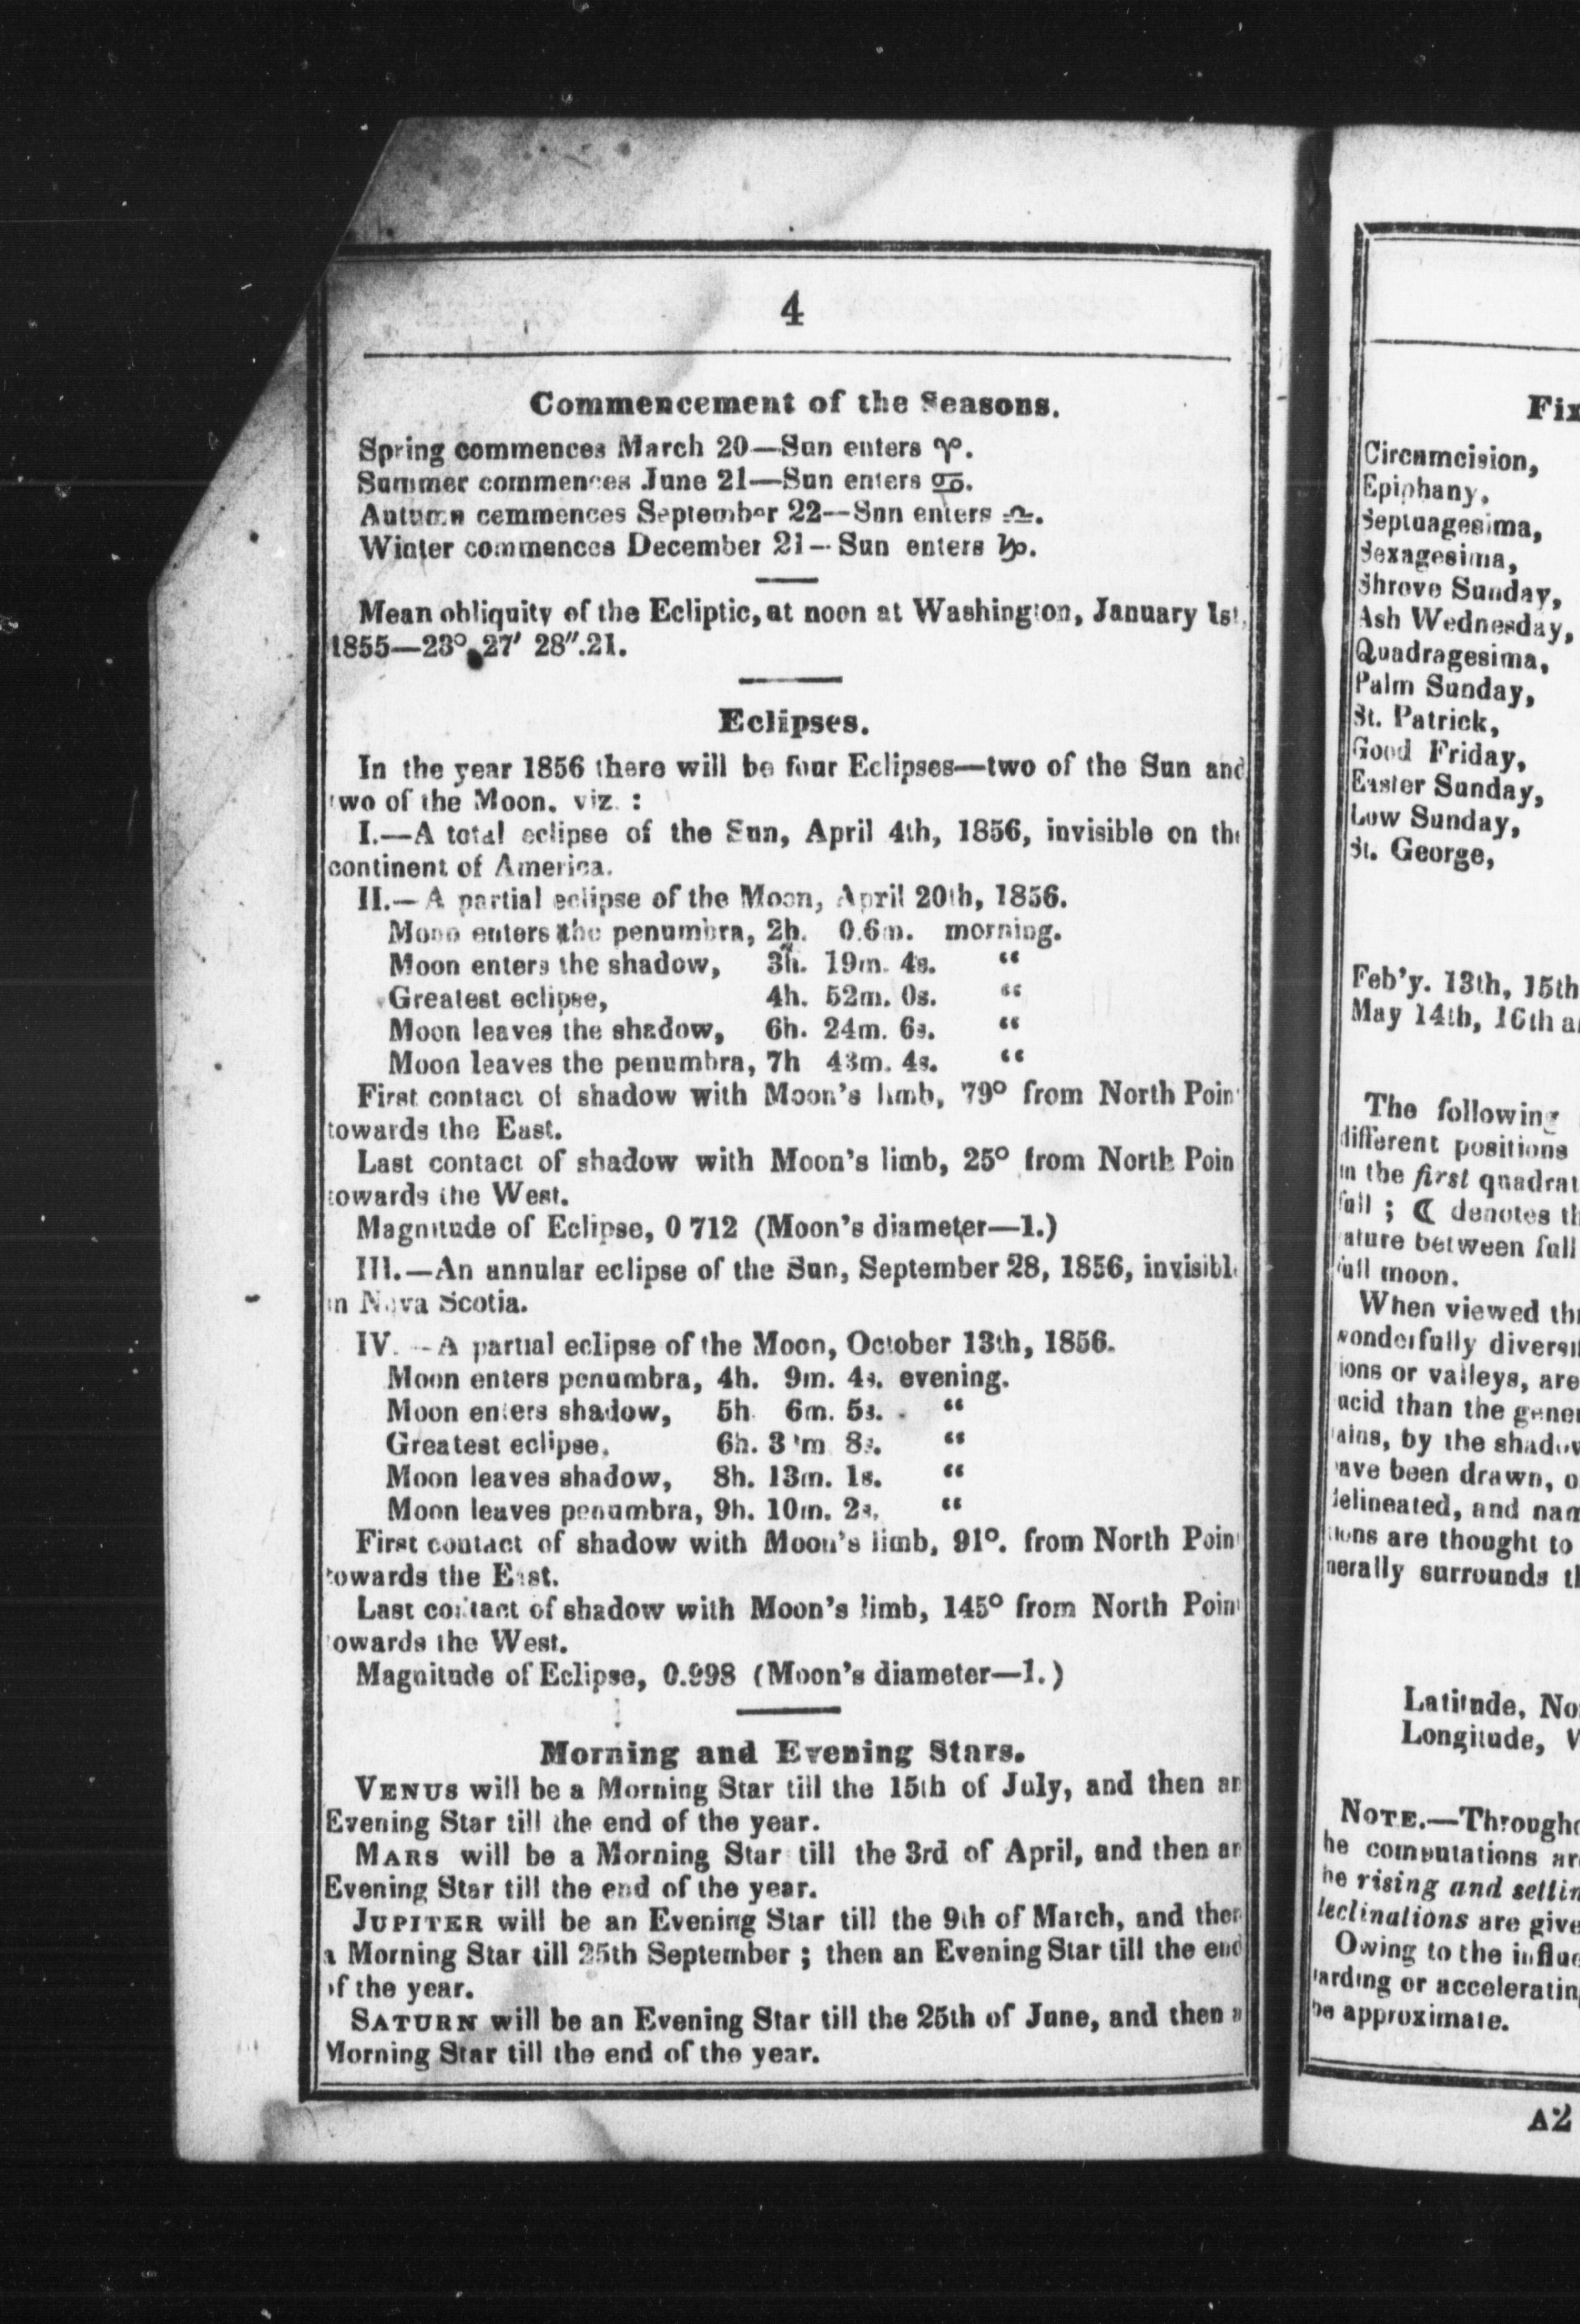 4
Commencement of the Seasons.
Spring commences March 20—Sun enters ♈.
Summer commences June 21—Sun enters ♋.
Autumn cemmences September 22—Snn enters ♎.
Winter commences December 21—Sun enters ♑.
Mean obliquity of the Ecliptic, at noon at Washington, January 1st,
1855—23° 27′ 28″.21.
Eclipses.
In the year 1856 there will be four Eclipses—two of the Sun and
two of the Moon. viz. :
I.—A total eclipse of the Sun, April 4th, 1856, invisible on the
continent of America.
II.—A partial eclipse of the Moon, April 20th, 1856.
Moon enters the penumbra, 2h. 0.6m. morning.
Moon enters the shadow, 3h. 19m. 4s. “
Greatest eclipse, 4h. 52m. 0s. “
Moon leaves the shadow, 6h. 24m. 6s. “
Moon leaves the penumbra, 7h 43m. 4s. “
First contact of shadow with Moon's limb, 79° from North Poin
towards the East.
Last contact of shadow with Moon's limb, 25° from North Poin
towards the West.
Magnitude of Eclipse, 0 712 (Moon's diameter—1.)
III.—An annular eclipse of the Sun, September 28, 1856, invisibl
in Nova Scotia.
IV.—A partial eclipse of the Moon, October 13th, 1856.
Moon enters penumbra, 4h. 9m. 4s. evening.
Moon enters shadow, 5h 6m. 5s. “
Greatest eclipse, 6h. 8s. “
Moon leaves shadow, 8h. 13m. 1s. “
Moon leaves penumbra, 9h. 10m. 2s. “
First contact of shadow with Moon's limb, 91°. from North Poin
towards the East.
Last contact of shadow with Moon's limb, 145° from North Poin
owards the West.
Magnitude of Eclipse, 0.998 (Moon's diameter—1.)
Morning and Evening Stars.
VENUS will be a Morning Star till the 15th of July, and then an
Evening Star till the end of the year.
MARS will be a Morning Star till the 3rd of April, and then an
Evening Star till the end of the year.
JUPITER will be an Evening Star till the 9th of March, and then
a Morning Star till 25th September ; then an Evening Star till the end
of the year.
SATURN will be an Evening Star till the 25th of June, and then a
Morning Star till the end of the year.
Fix
Circumcision,
Epiphany,
Septuagesima,
Sexagesima,
Shrove Sunday,
Ash Wednesday,
Quadragesima,
Palm Sunday,
St. Patrick,
Good Friday,
Easter Sunday,
Low Sunday,
St. George,
Feb'y. 13th, 15th
May 14th, 16th a
The following
different positions
in the first quadrat
full ; ☾ denotes th
ature between full
full moon.
When viewed thr
wonderfully diversi
ions or valleys, are
ucid than the gener
ains, by the shadow
ave been drawn, o
delineated, and nam
tions are thought to
nerally surrounds th
Latitude, No
Longitude, W
NOTE.—Througho
he computations ar
he rising and settin
declinations are give
Owing to the influe
tarding or acceleratin
be approximate.
A2